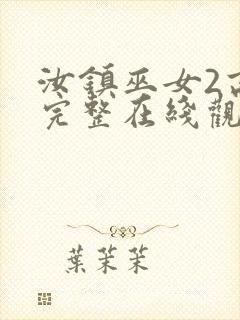 汝鎮巫女2
完整在綫觀
葉茉茉